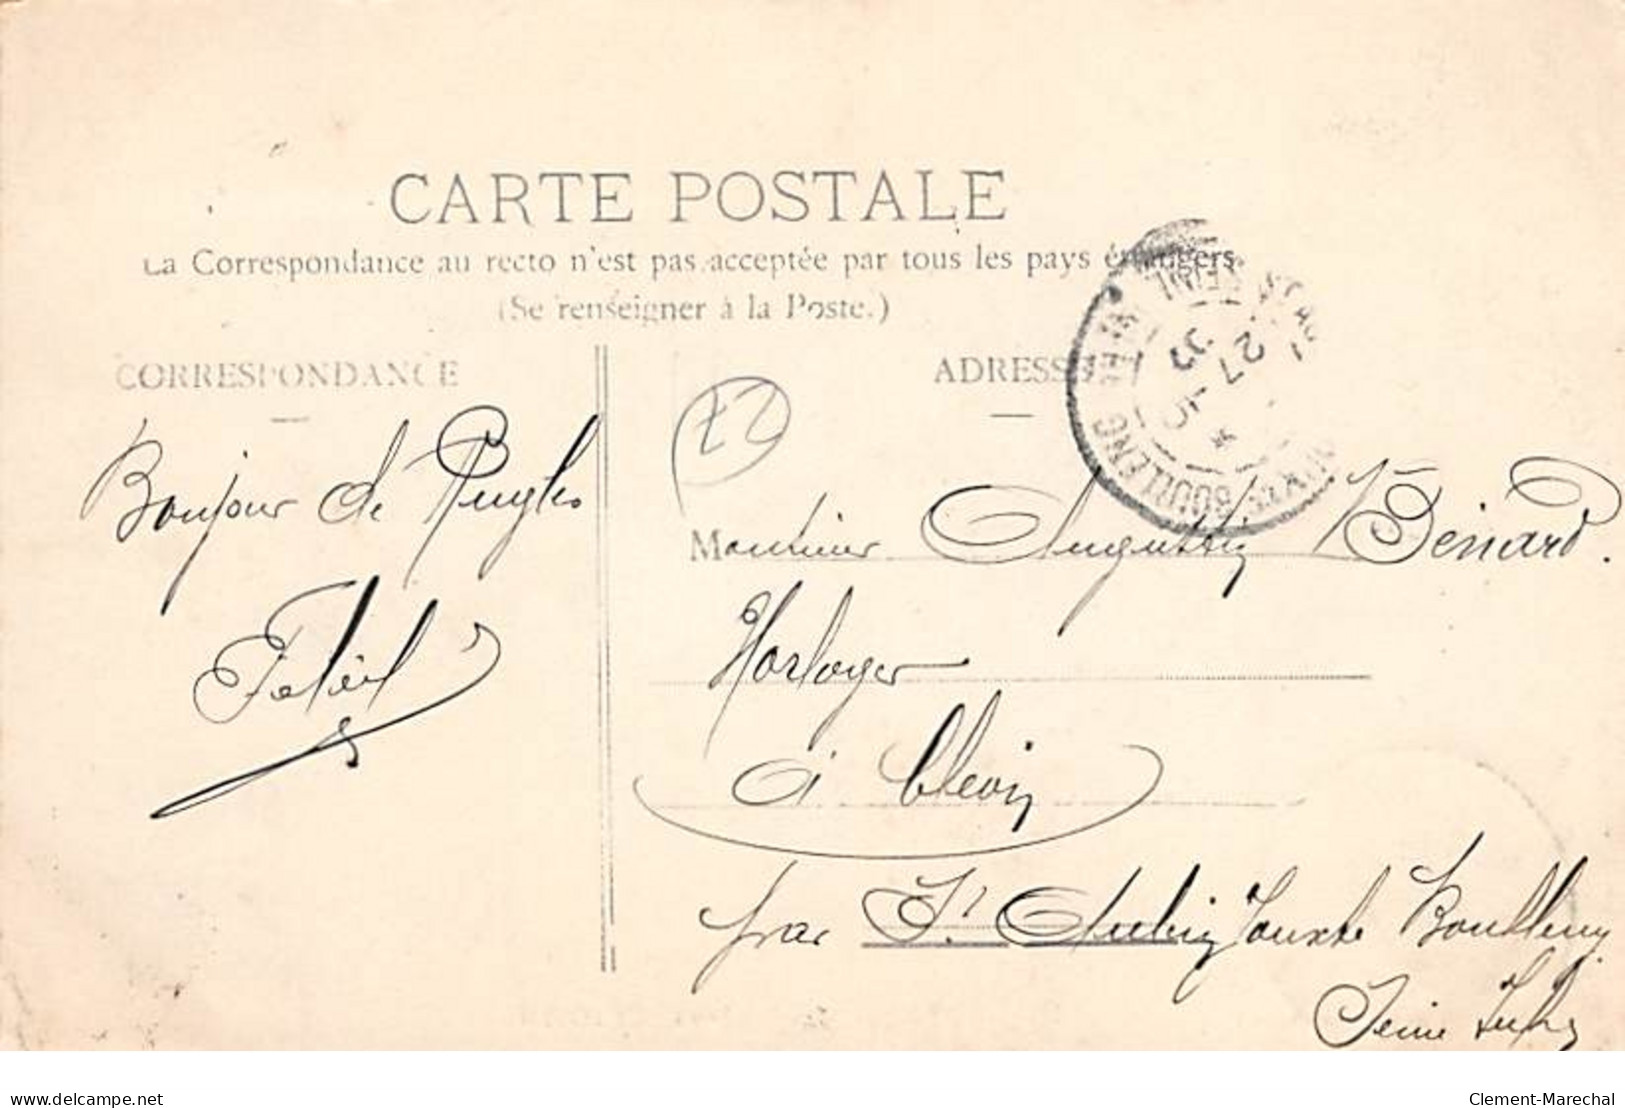 CARTE POSTALE
La Correspondance au recto n'est pas acceptée par tous les pays étrangers
(Se renseigner à la Poste.)
CORRESPONDANCE
Bonjour de Rugles
ADRESSE
22
Monsieur Augustin Bénard.
Horloger
à Cléon
par St Aubin Jouxte Boulleng
Seine Infre
27
delcampe.net
Clement-Marechal